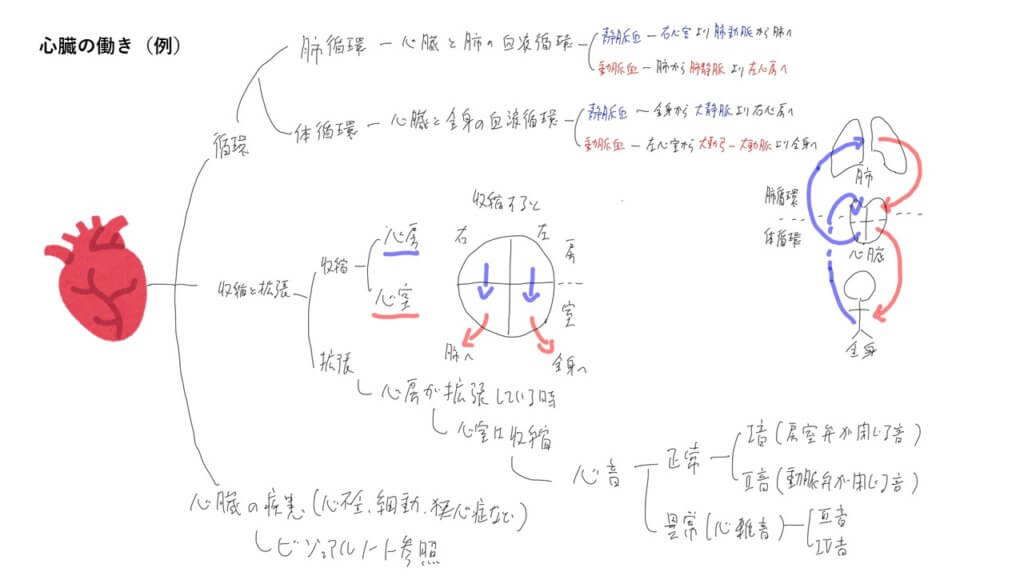 心臓の働き（例）
肺循環 ー 心臓と肺の血液循環
静脈血 ー 右心室より肺動脈から肺へ
動脈血 ー 肺から肺静脈より左心房へ
体循環 ー 心臓と全身の血液循環
静脈血 ー 全身から大静脈より右心房へ
動脈血 ー 左心室から大動弓ー大動脈より全身へ
循環
肺
肺循環
体循環
心臓
全身
収縮と拡張
収縮
心房
心室
収縮すると
右
左
房
室
肺へ
全身へ
拡張
心房が拡張している時
心室は収縮
心音
正常
I音(房室弁が閉じる音)
II音(動脈弁が閉じる音)
異常(心雑音)
III音
IV音
心臓の疾患(心不全、細動、狭心症など)
ビジュアルノート参照